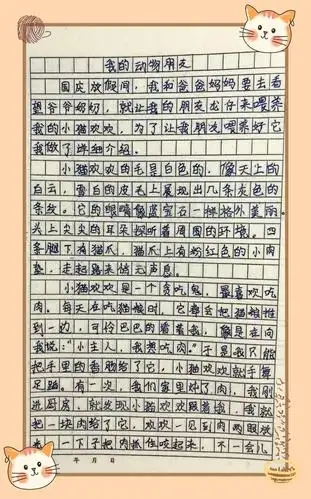 我的动物朋友
国庆放假间，我和爸爸妈妈要去看
望爷爷奶奶，就让我的朋友龙仔来喂养
我的小猫欢欢，为了让我朋友喂养好它
我做了详细介绍。
小猫欢欢的毛是白色的，像天上的
白云，雪白的皮毛上展现出几条灰色的
条纹。它的眼睛像蓝宝石一样格外美丽。
头上尖尖的耳朵探听着周围的环境。四
条腿下有猫爪，猫爪上有粉红色的小肉
垫，走起路来悄无声息。
小猫欢欢是一个贪吃鬼，最喜欢吃
肉。每天在吃猫粮时，它都会把猫粮推
到一边，可怜巴巴的看着我，像是在向
我说：“小主人，我想吃肉。”于是我只能
把手里的香肠给了它，小欢欢欢就手舞
足蹈。有一次，我们家里炒了肉，我刚
进厨房，就发现小猫欢欢跟着我，我就
把一块肉给了它，欢欢一见到肉两眼放
光，一下子把肉抓住咬起来，不一会儿
年 月 日